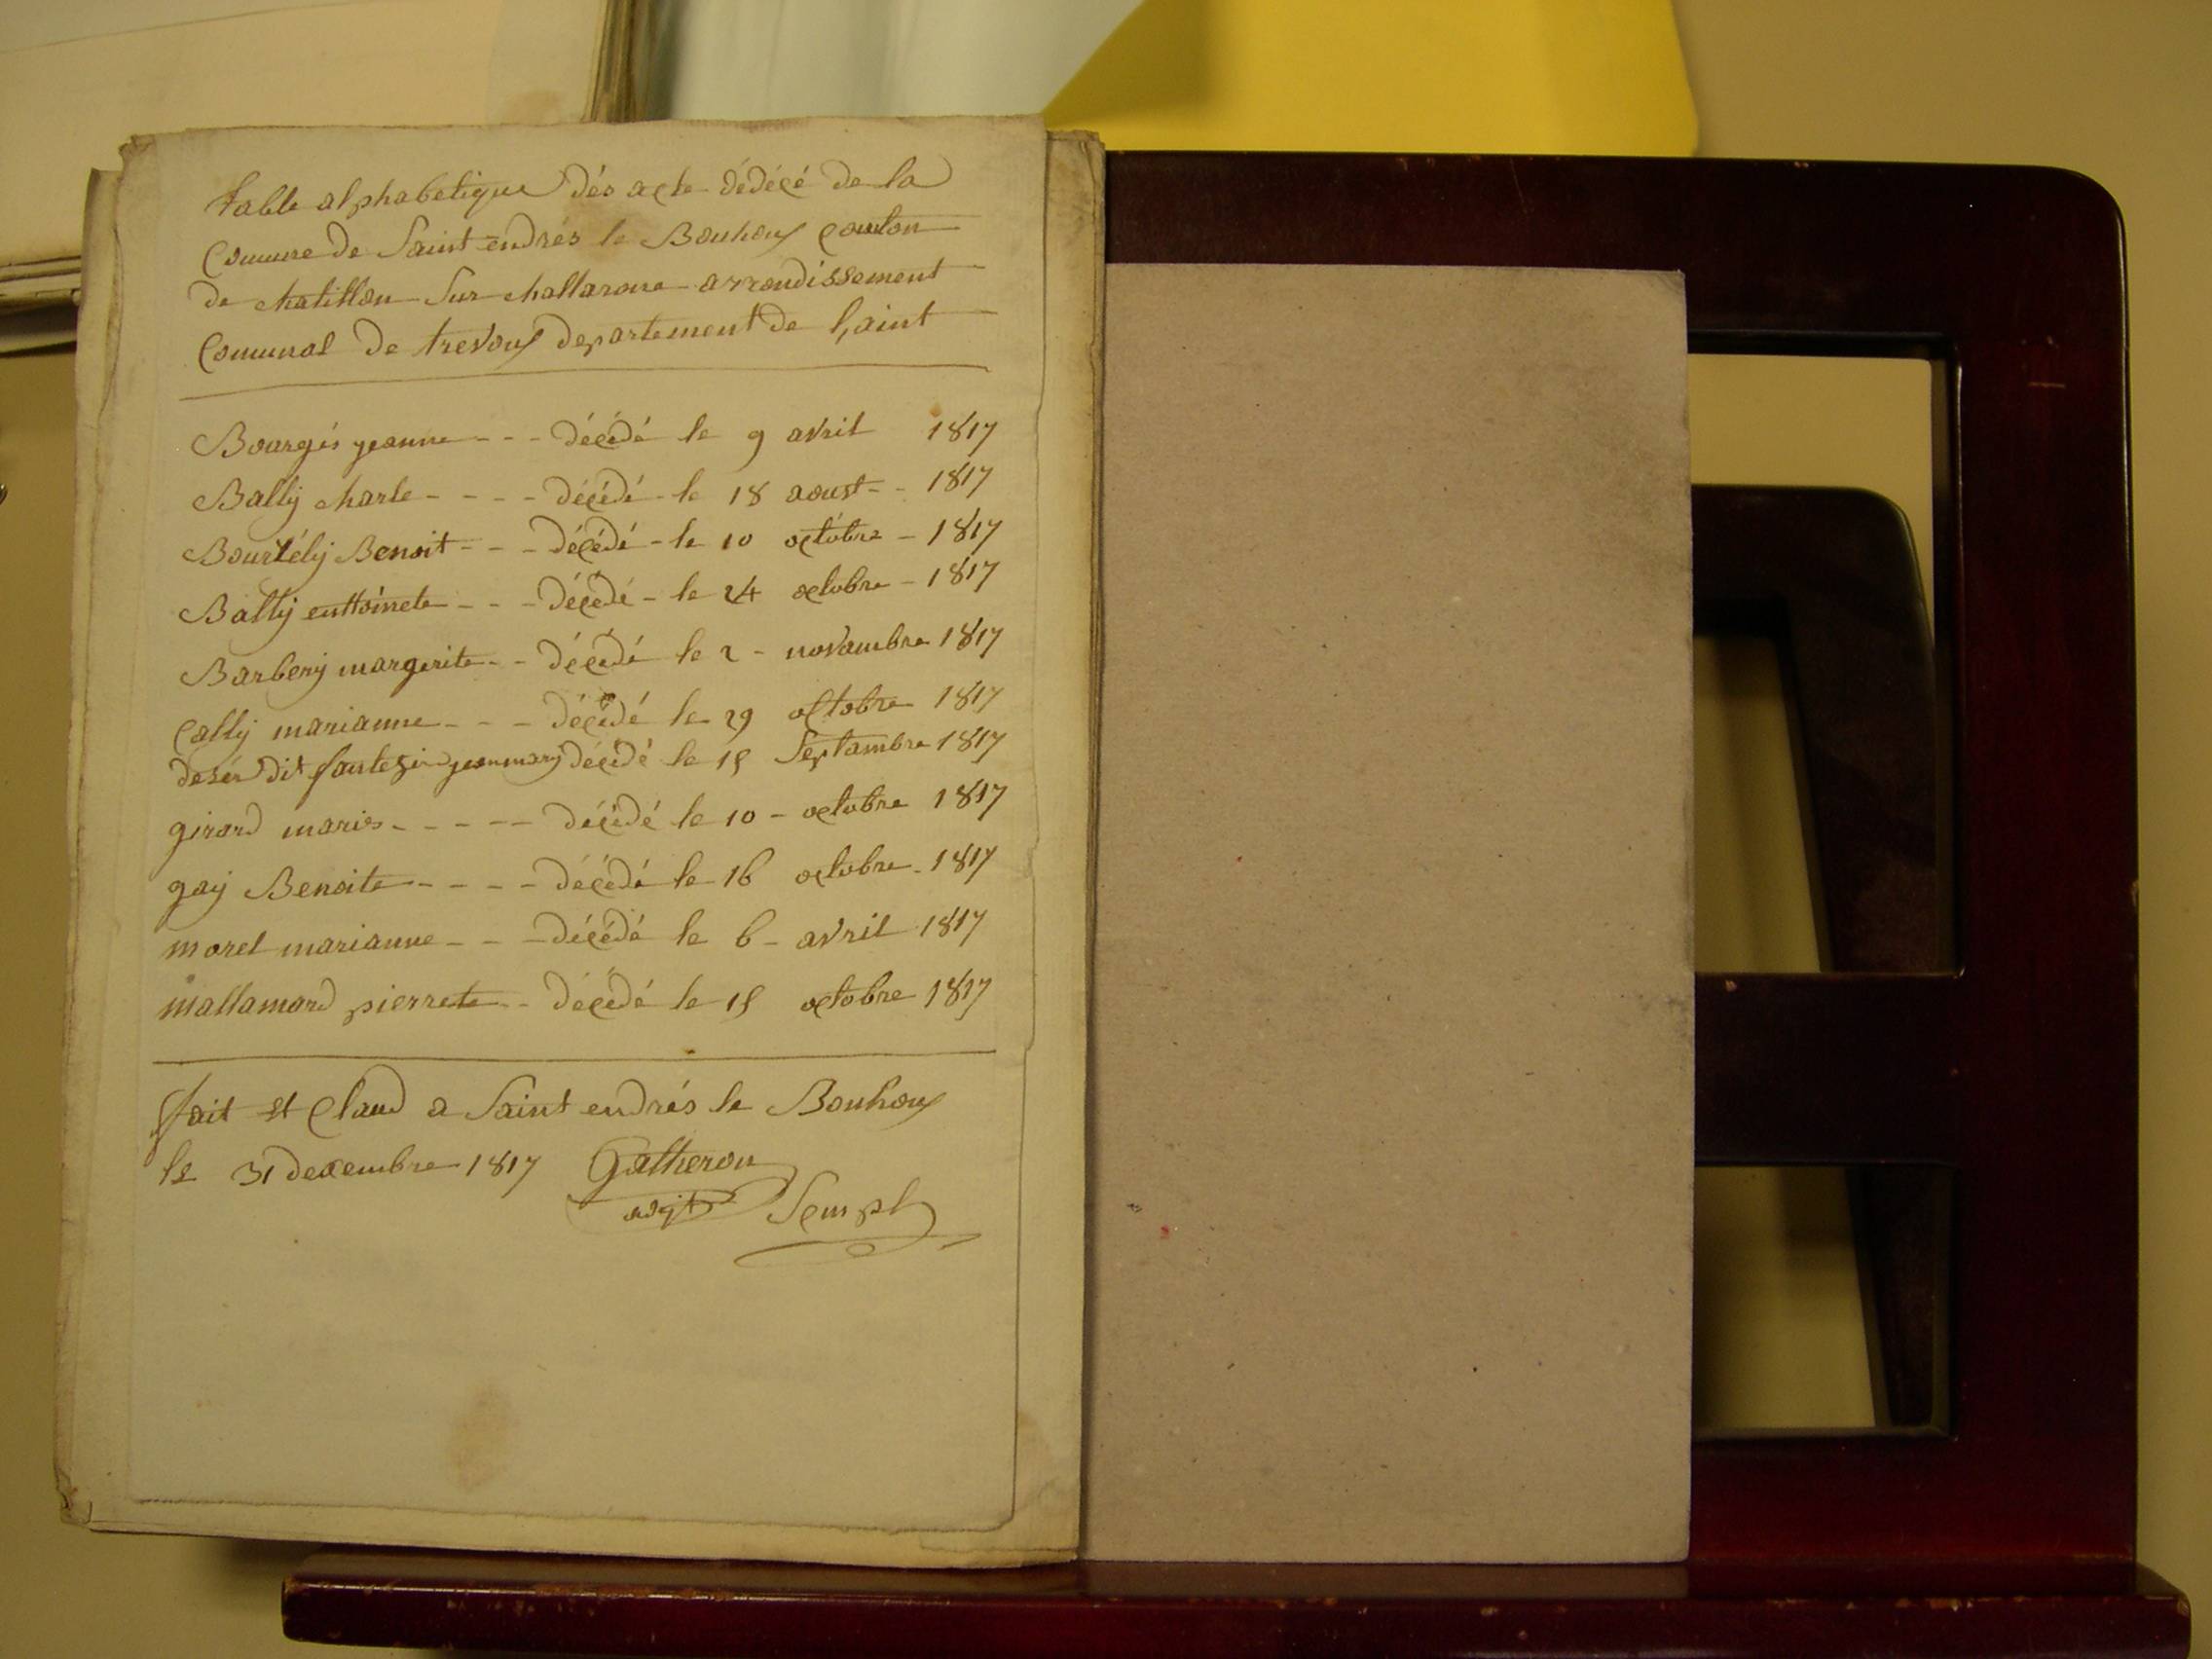 table alphabetique dés acte dédécé de la
Comune de Saint endrés le Bouhoux canton
de chatillon Sur challarone arrondissement
Comunal de trevoux departement de l'aint
Bourgés jeanne - - - décédé le 9 avril 1817
Bally charle - - - - décédé - le 18 aoust - - 1817
Bourtély Benoit - - - décédé - le 10 octobre - 1817
Bally enttoinete - - - décédé - le 24 octobre - 1817
Barbery margerite - - décédé le 2 - novambre 1817
Cally marianne - - - décédé le 29 octobre 1817
dit décédé le 15 Septambre 1817
girard marie - - - - - décédé le 10 - octobre 1817
gay Benoite - - - - décédé le 16 octobre - 1817
morel marianne - - - décédé le 6 - avril 1817
mallamard pierrete - - décédé le 15 octobre 1817
fait et Claud a Saint endrés le Bouhoux
le 31 decembre 1817 Gatheron
adjt